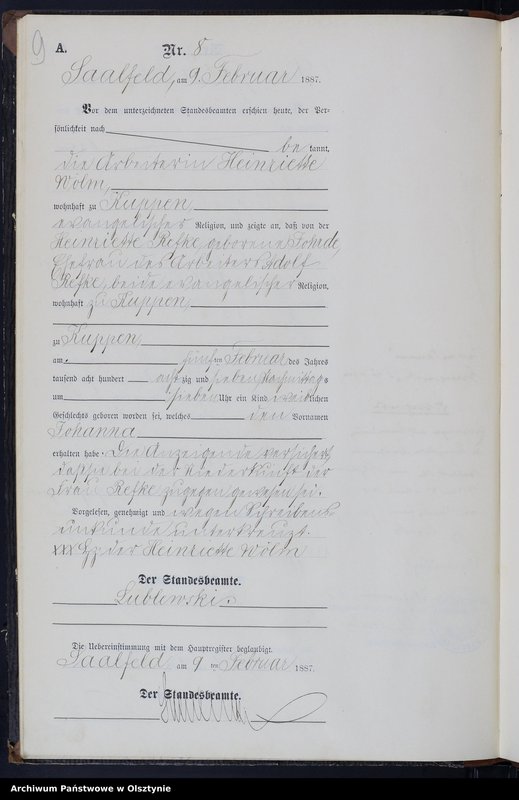 9
A. Nr. 8
Saalfeld, am 9. Februar 1887.
Vor dem unterzeichneten Standesbeamten erschien heute, der Per-
sönlichkeit nach
be kannt,
die Arbeiterin Heinriette
Wölm,
wohnhaft zu Kuppen,
evangelischer Religion, und zeigte an, daß von der
Heinriette Refke geborene
Ehefrau des Arbeiters Adolf
Refke, beide evangelischer Religion,
wohnhaft zu Kuppen,
zu Kuppen,
am fünften Februar des Jahres
tausend acht hundert achtzig und sieben Nachmittags
um sieben Uhr ein Kind weiblichen
Geschlechts geboren worden sei, welches den Vornamen
Johanna
erhalten habe. Die Anzeigende versichert,
daß sie bei der Niederkunft der
Frau Refke zugegen gewesen sei.
Vorgelesen, genehmigt und wegen Schreibens-
unkunde unterkreuzt.
XXX Hz der Heinriette Wölm
Der Standesbeamte.
Lublewski.
Die Uebereinstimmung mit dem Hauptregister beglaubigt.
Saalfeld am 9 ten Februar 1887.
Der Standesbeamte.
Archiwum Państwowe w Olsztynie